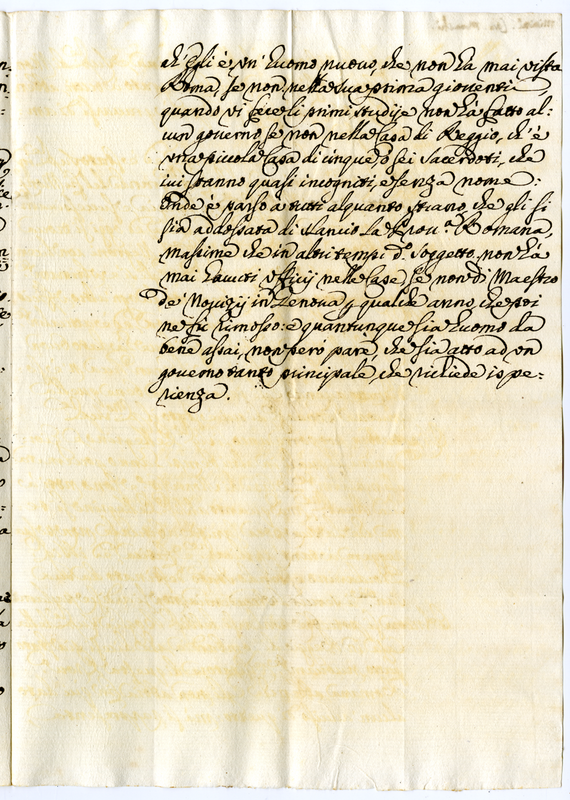 ch'egli è un'huomo nuovo, che non ha mai vista
Roma, se non nella sua prima gioventù,
quando vi fece li primi studij e non hà fatto al:
cun governo se non nella Casa di Reggio, ch'è
una piccola Casa di cinque, ò sei Sacerdoti, che
ivi stanno quasi incogniti, e senza nome:
Onde è parso à tutti alquanto strano che gli si
sia addossata di slancio la Prov.ª Romana,
massime che in altri tempi d.º Soggetto non hà
mai havuti Officij nelle Case, se non di Maestro
de Novizij in Genova p qualche anno, che poi
ne fù rimosso: e quantunque sia huomo da
bene assai, non però pare, che sia atto ad un
governo tanto principale, che richiede ispe:
rienza.